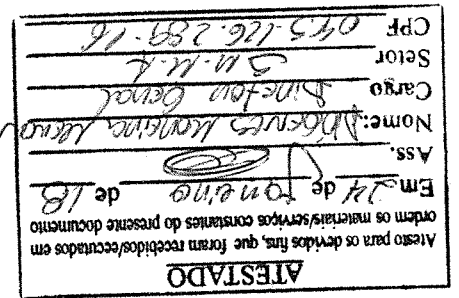 ATESTADO
Atesto para os devidos fins, que foram recebidos/executados em
ordem os materiais/serviços constantes do presente documento
Em 24 de Janeiro de 18
Ass.
Nome: Diógenes Moreira
Cargo Diretor Geral
Setor S.M.M.A
CPF 043.126.289-16